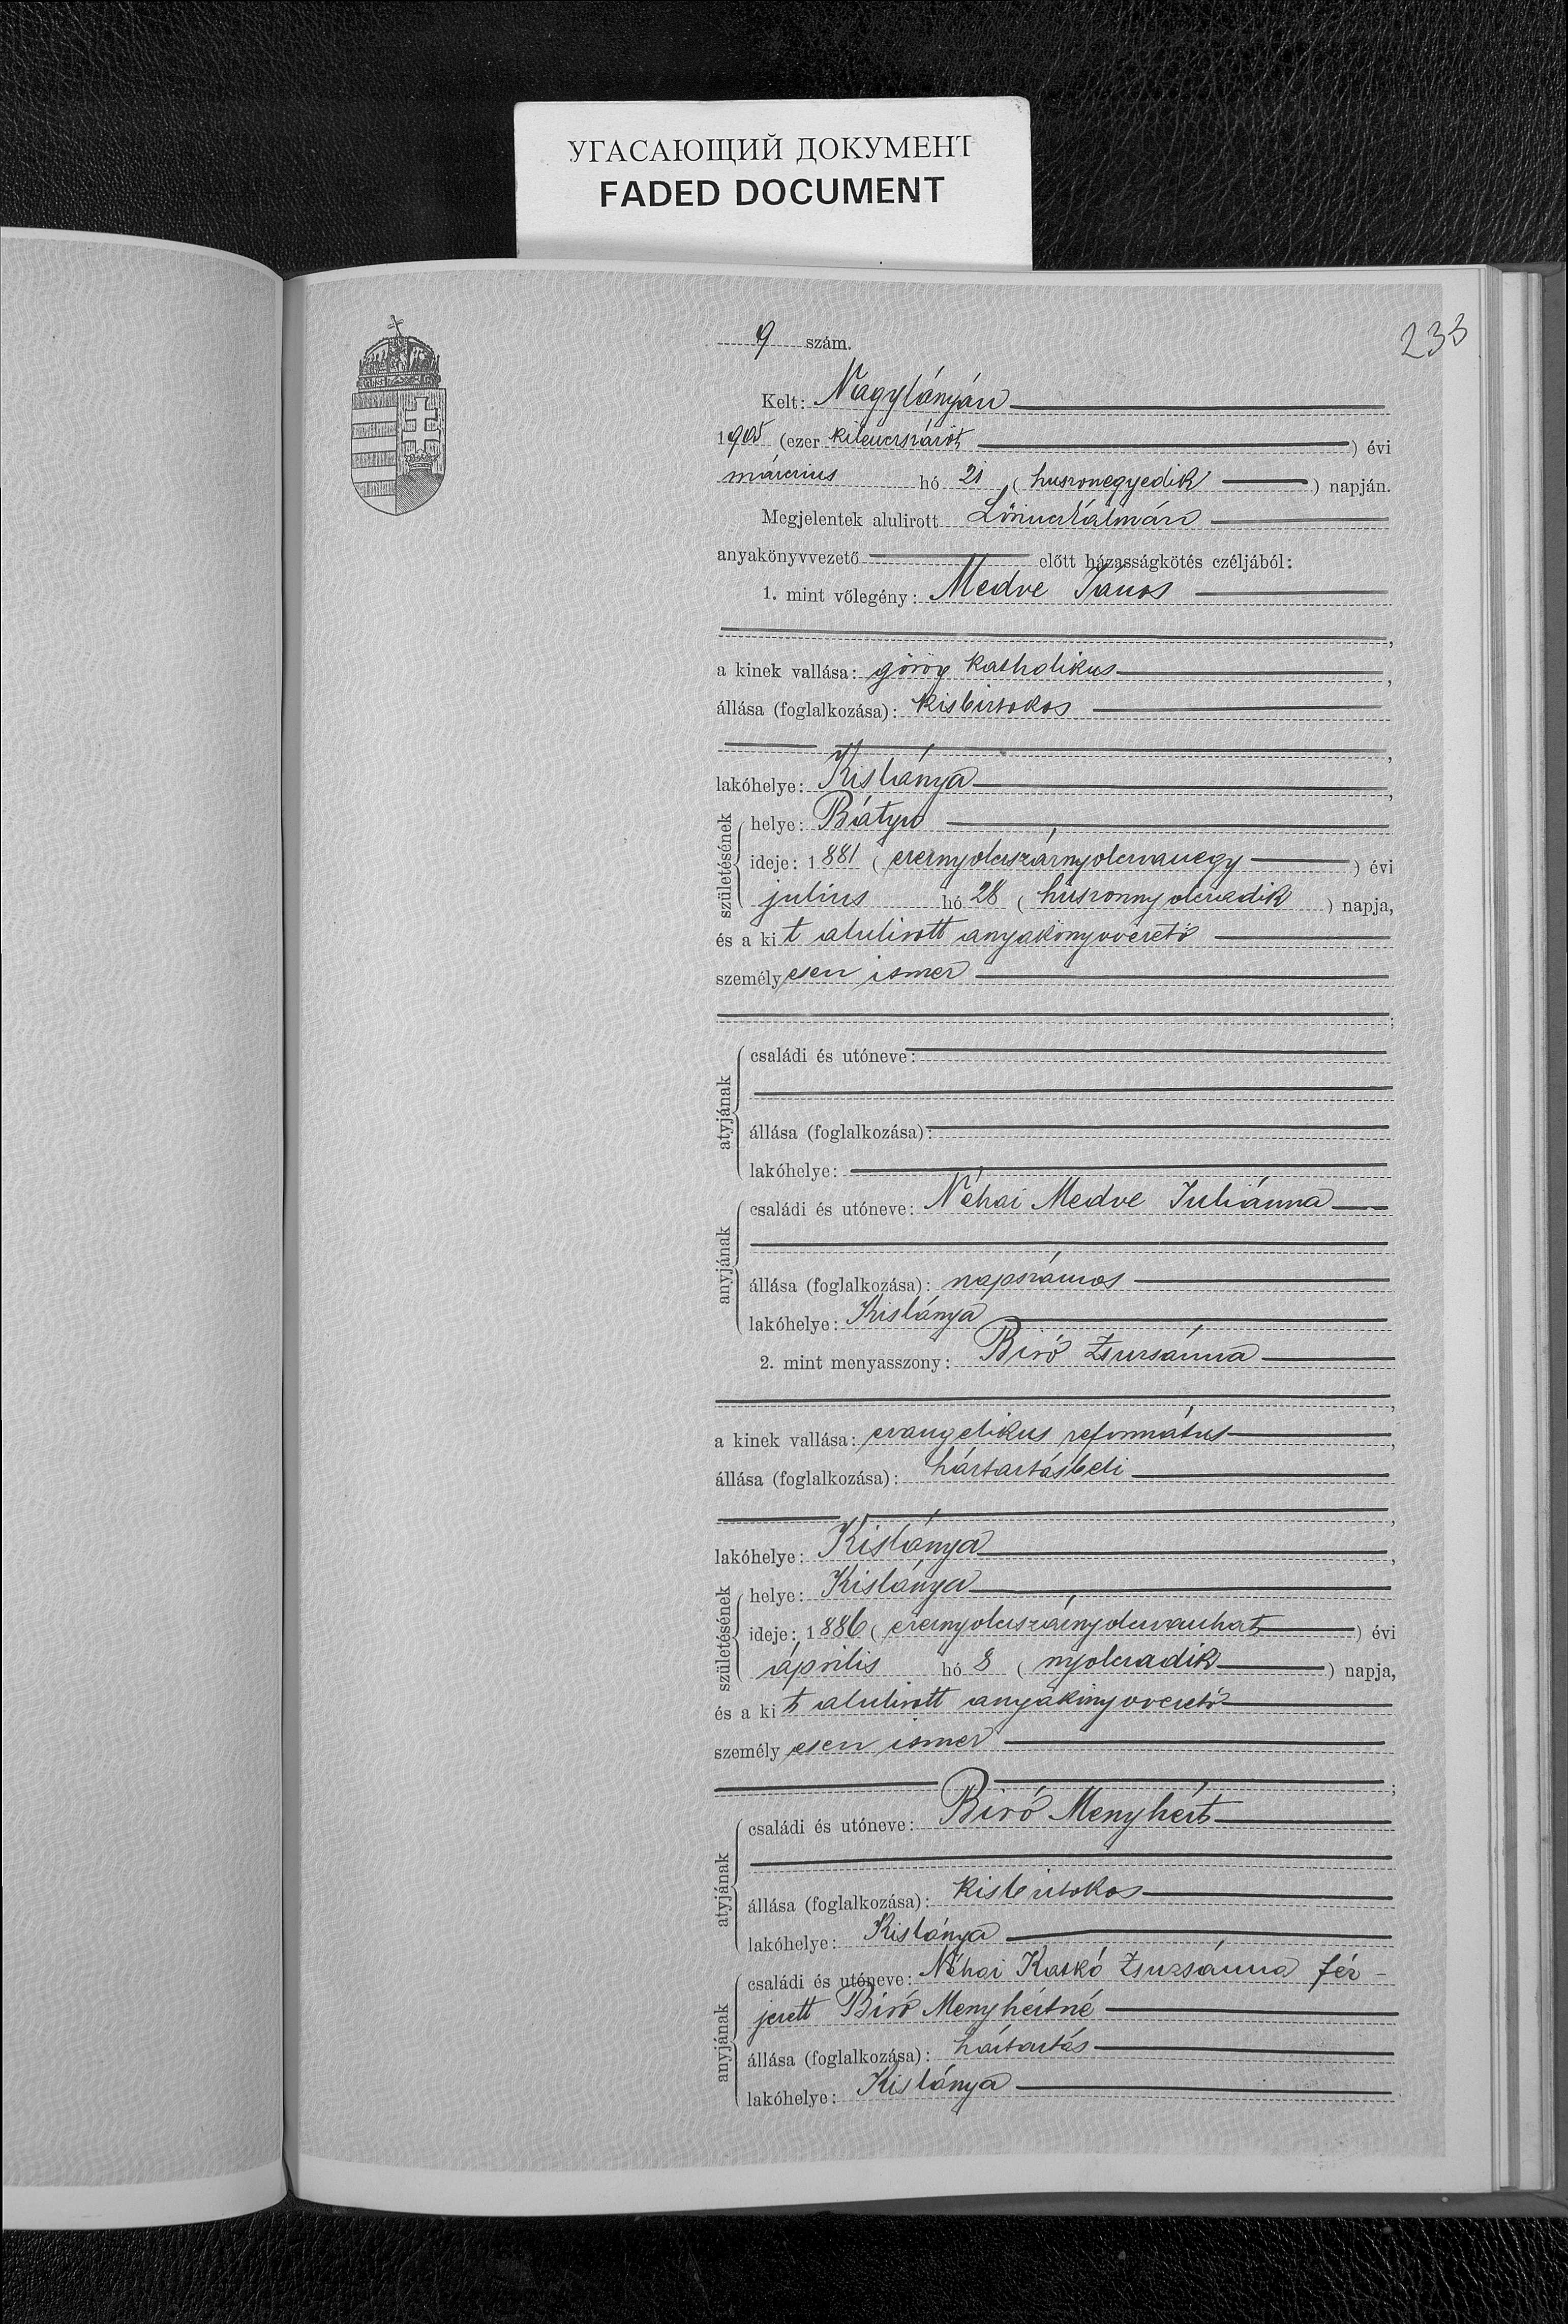 УГАСАЮЩИЙ ДОКУМЕНТ
FADED DOCUMENT
233
9 szám.
Kelt: Nagylányán
1905 (ezer kilenczszázöt) évi
márczius hó 21 (huszonegyedik) napján.
Megjelentek alulirott Lőrincz Kálmán
anyakönyvvezető előtt házasságkötés czéljából:
1. mint vőlegény: Medve János
a kinek vallása: görög katholikus,
állása (foglalkozása): kisbirtokos
lakóhelye: Kislánya,
születésének
helye: Bátyu
ideje: 1881 (ezernyolczszáznyolczvanegy) évi
julius hó 28 (huszonnyolczadik) napja,
és a kit alulirott anyakönyvvezető
személyesen ismer
;
atyjának
családi és utóneve:
állása (foglalkozása):
lakóhelye:
anyjának
családi és utóneve: Néhai Medve Juliánna
állása (foglalkozása): napszámos
lakóhelye: Kislánya
2. mint menyasszony: Biró Zsuzsánna
a kinek vallása: evangelikus református,
állása (foglalkozása): háztartásbeli
lakóhelye: Kislánya,
születésének
helye: Kislánya
ideje: 1886 (ezernyolczszáznyolczvanhat) évi
április hó 8 (nyolczadik) napja,
és a kit alulirott anyakönyvvezető
személyesen ismer
;
atyjának
családi és utóneve: Biró Menyhért
állása (foglalkozása): kisbirtokos
lakóhelye: Kislánya
anyjának
családi és utóneve: Néhai Kaskó Zsuzsánna fér-
jezett Biró Menyhértné
állása (foglalkozása): háztartás
lakóhelye: Kislánya